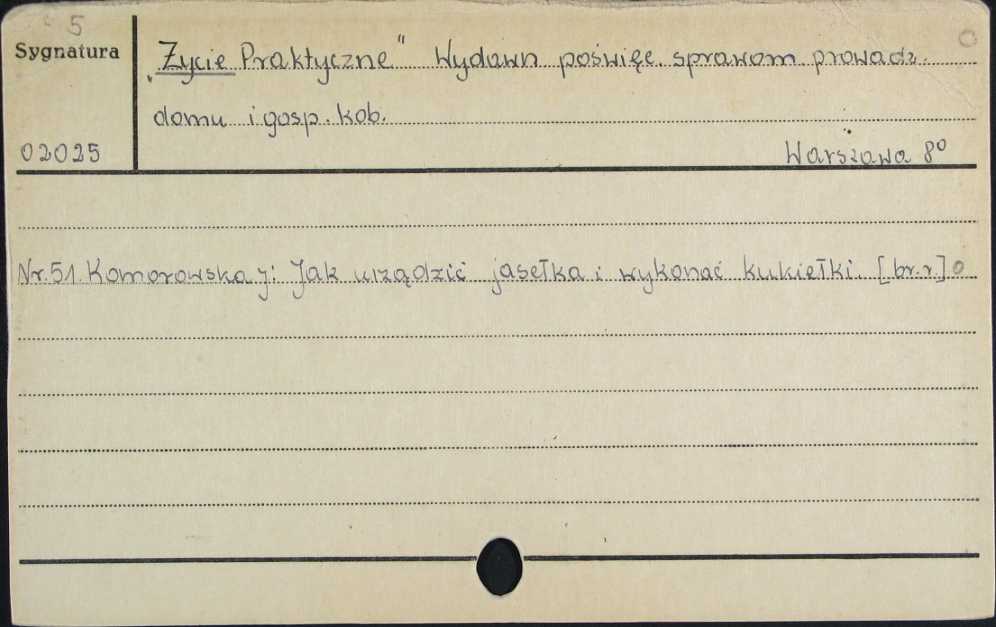 5
Sygnatura
„Życie Praktyczne" Wydawn poświęc. sprawom prowadz.
domu i gosp. kob.
02025
Warszawa 8°
Nr.51. Komorowska J: Jak urządzić jasełka i wykonać kukiełki. [br.r.]